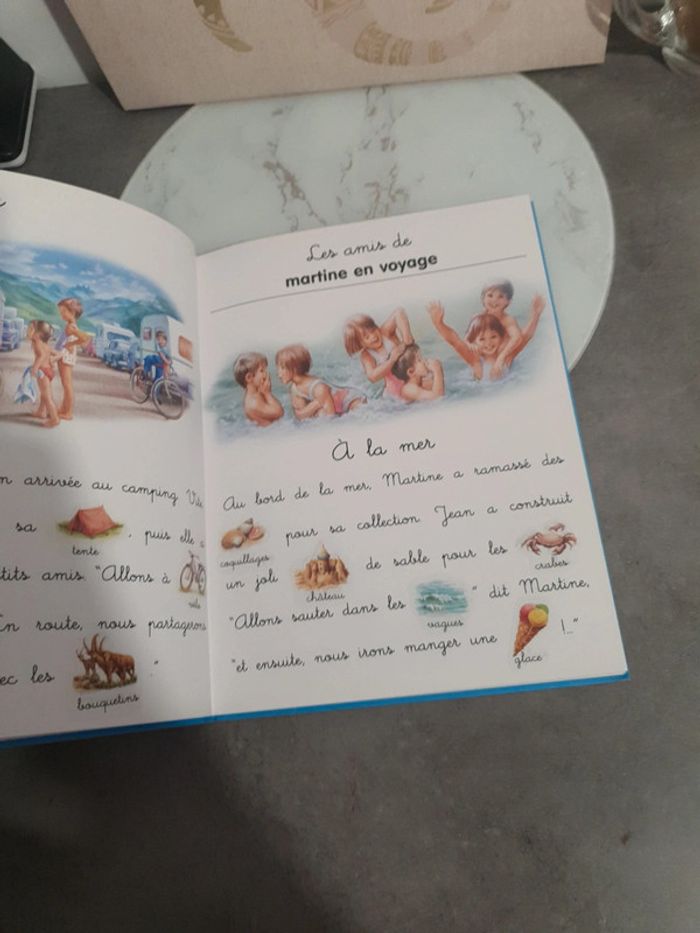 arrivée au camping
sa
, puis elle
tente
amis. "Allons à
En route, nous partagerons
les
"
bouquetins
Les amis de
martine en voyage
À la mer
Au bord de la mer, Martine a ramassé des
pour sa collection. Jean a construit
coquillages
un joli de sable pour les
château
crabes
"Allons sauter dans les " dit Martine,
vagues
"et ensuite, nous irons manger une !..."
glace